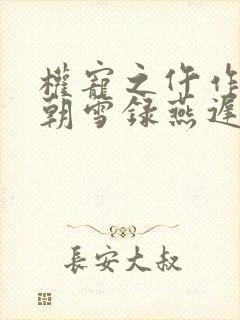 權寵之仵作
朝雪録燕遲
長安大叔